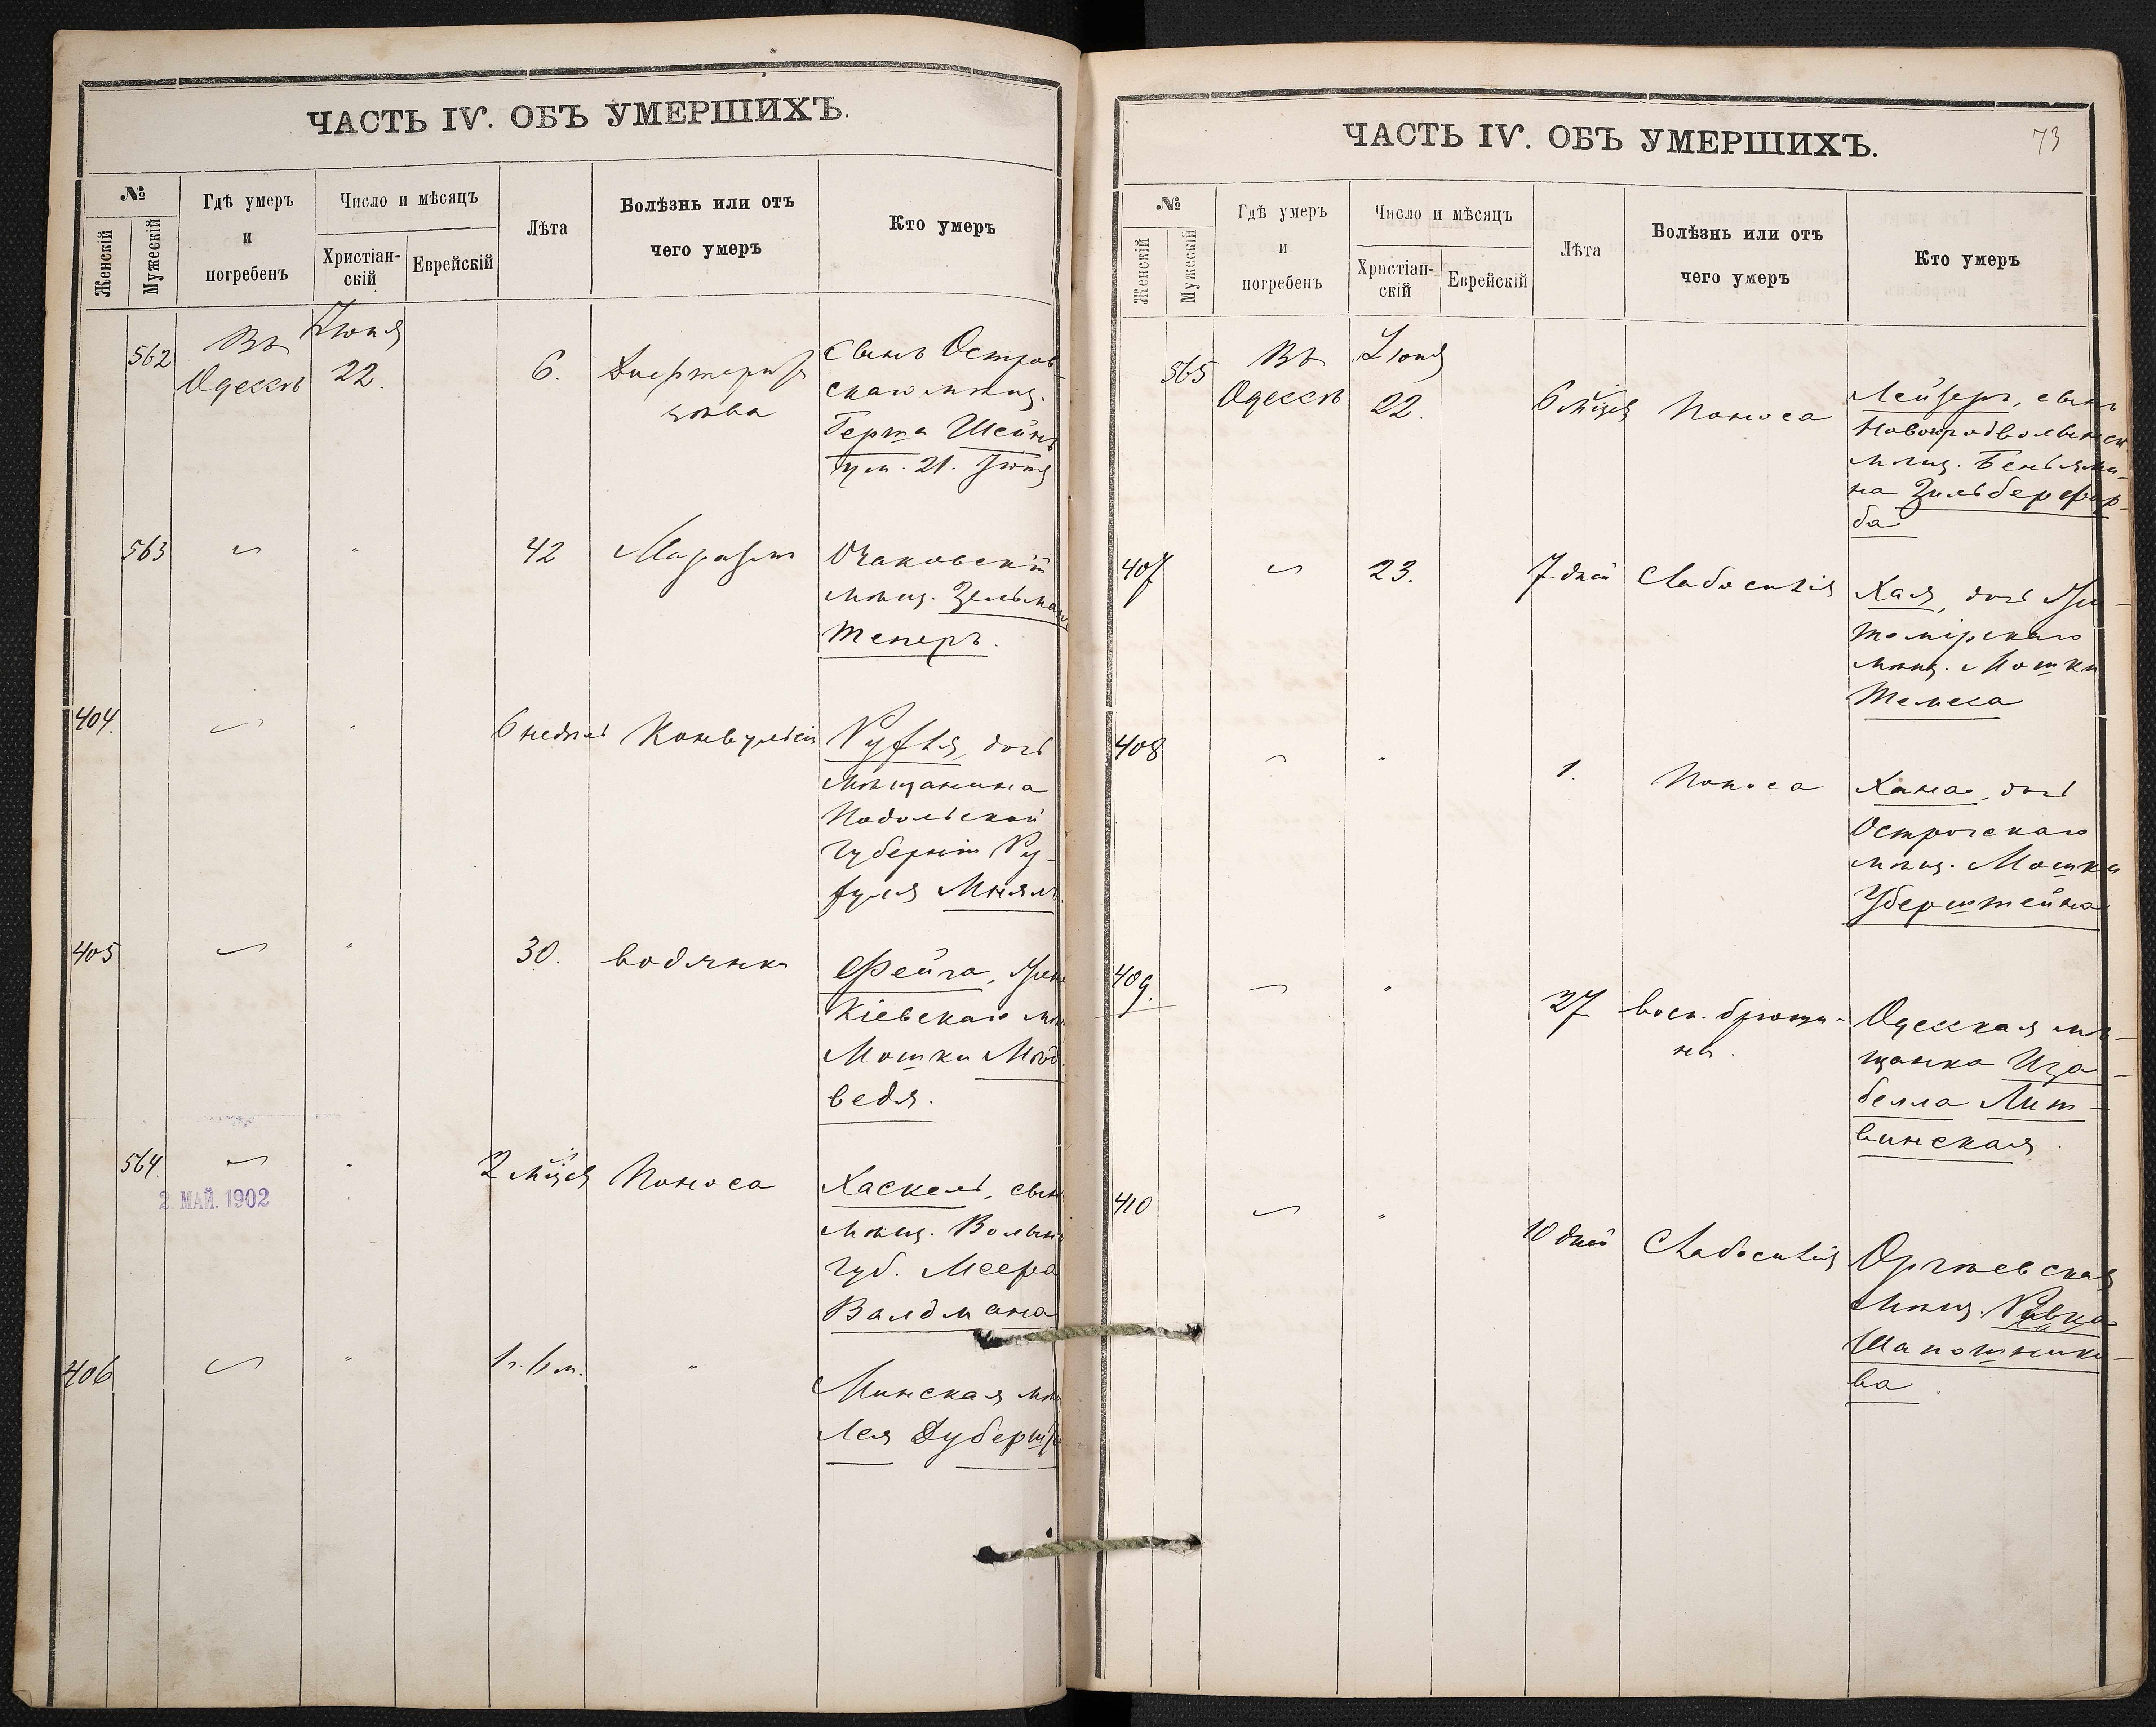 ЧАСТЬ IV. ОБЪ УМЕРШИХЪ.
№
Женскій
Мужескій
Гдѣ умеръ
и
погребенъ
Число и мѣсяцъ
Христіан-
скій
Еврейскій
Лѣта
Болѣзнь или отъ
чего умеръ
Кто умеръ
562
Въ
Одессѣ
Іюня
22.
6.
зѣва
сынъ Остров-
скаго мѣщ.
Герта Шейнъ
ум. 21. Іюня
563
"
42
Маразм
Очаковскій
мѣщ. Зельман
Теперъ.
404.
"
6 недѣль
Конвульсія
Рухля, дочь
мѣщанина
Подольской
губерніи Ру-
Мнялъ
405
"
30.
водянка
Фейга, жена
Кіевскаго мѣщ
Мошки Мед
ведя.
564.
2. МАЙ. 1902
"
2 мѣсяц
Поноса
Хаскель, сынъ
мѣщ. Волын
губ. Меера
Валдмана
406
"
"
Минская мѣщ
Лея
ЧАСТЬ IV. ОБЪ УМЕРШИХЪ.
73
№
Женскій
Мужескій
Гдѣ умеръ
и
погребенъ
Число и мѣсяцъ
Христіан-
скій
Еврейскій
Лѣта
Болѣзнь или отъ
чего умеръ
Кто умеръ
565
Въ
Одессѣ
Іюня
22.
6 мѣсяц
Поноса
Лейзеръ, сынъ
Новоградволынск
мѣщ. Беньями-
на Зильберфар-
ба
407
23.
7 дней
Слабосилія
Хая, дочь Жи-
томірскаго
мѣщ. Мошки
Телеса
408
"
1.
Поноса
Хана, дочь
Острогскаго
мѣщ. Мошки
Уберштейна
409.
"
27
восп. брюши-
ны.
Одесская мѣ-
щанка Иза-
белла Лит-
винская.
410
"
10 дней
Слабосилія
Оргѣевская
мѣщ. Ривка
Шапошнико-
ва.